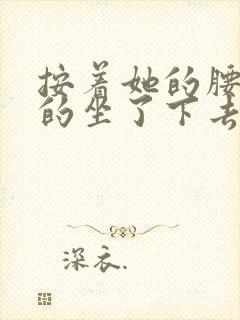 按着她的腰
的坐了下去
深衣.